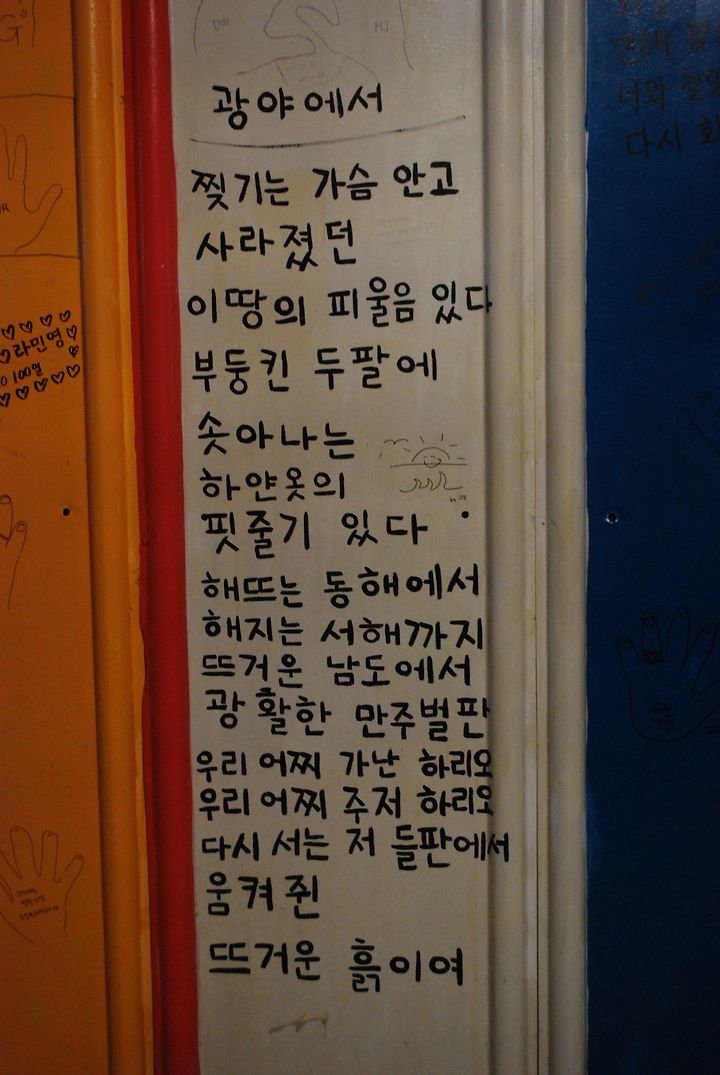 광야에서
찢기는 가슴 안고
사라졌던
이땅의 피울음 있다
부둥킨 두팔에
솟아나는
하얀옷의
핏줄기 있다
해뜨는 동해에서
해지는 서해까지
뜨거운 남도에서
광활한 만주벌판
우리 어찌 가난 하리오
우리 어찌 주저 하리오
다시 서는 저 들판에서
움켜쥔
뜨거운 흙이여
라민영
100일
너와
다시